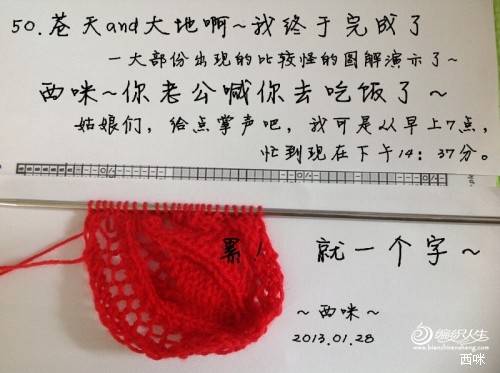 50.苍天and大地啊~我终于完成了
一大部份出现的比较怪的图解演示了~
西咪~你老公喊你去吃饭了~
姑娘们，给点掌声吧，我可是从早上7点，
忙到现在下午14：37分。
累！就一个字~
~西咪~
2013.01.28
编织人生
www.bianzhirensheng.com
西咪